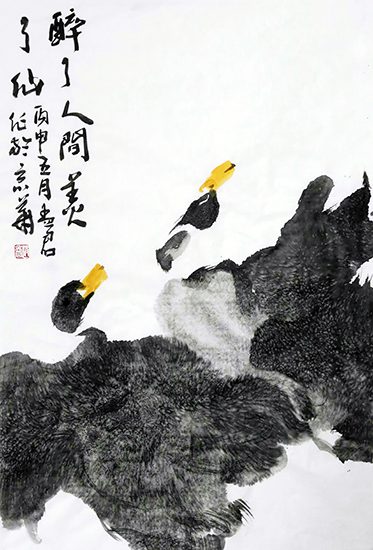 醉了人間羡
了仙
丙申五月君
作於京華